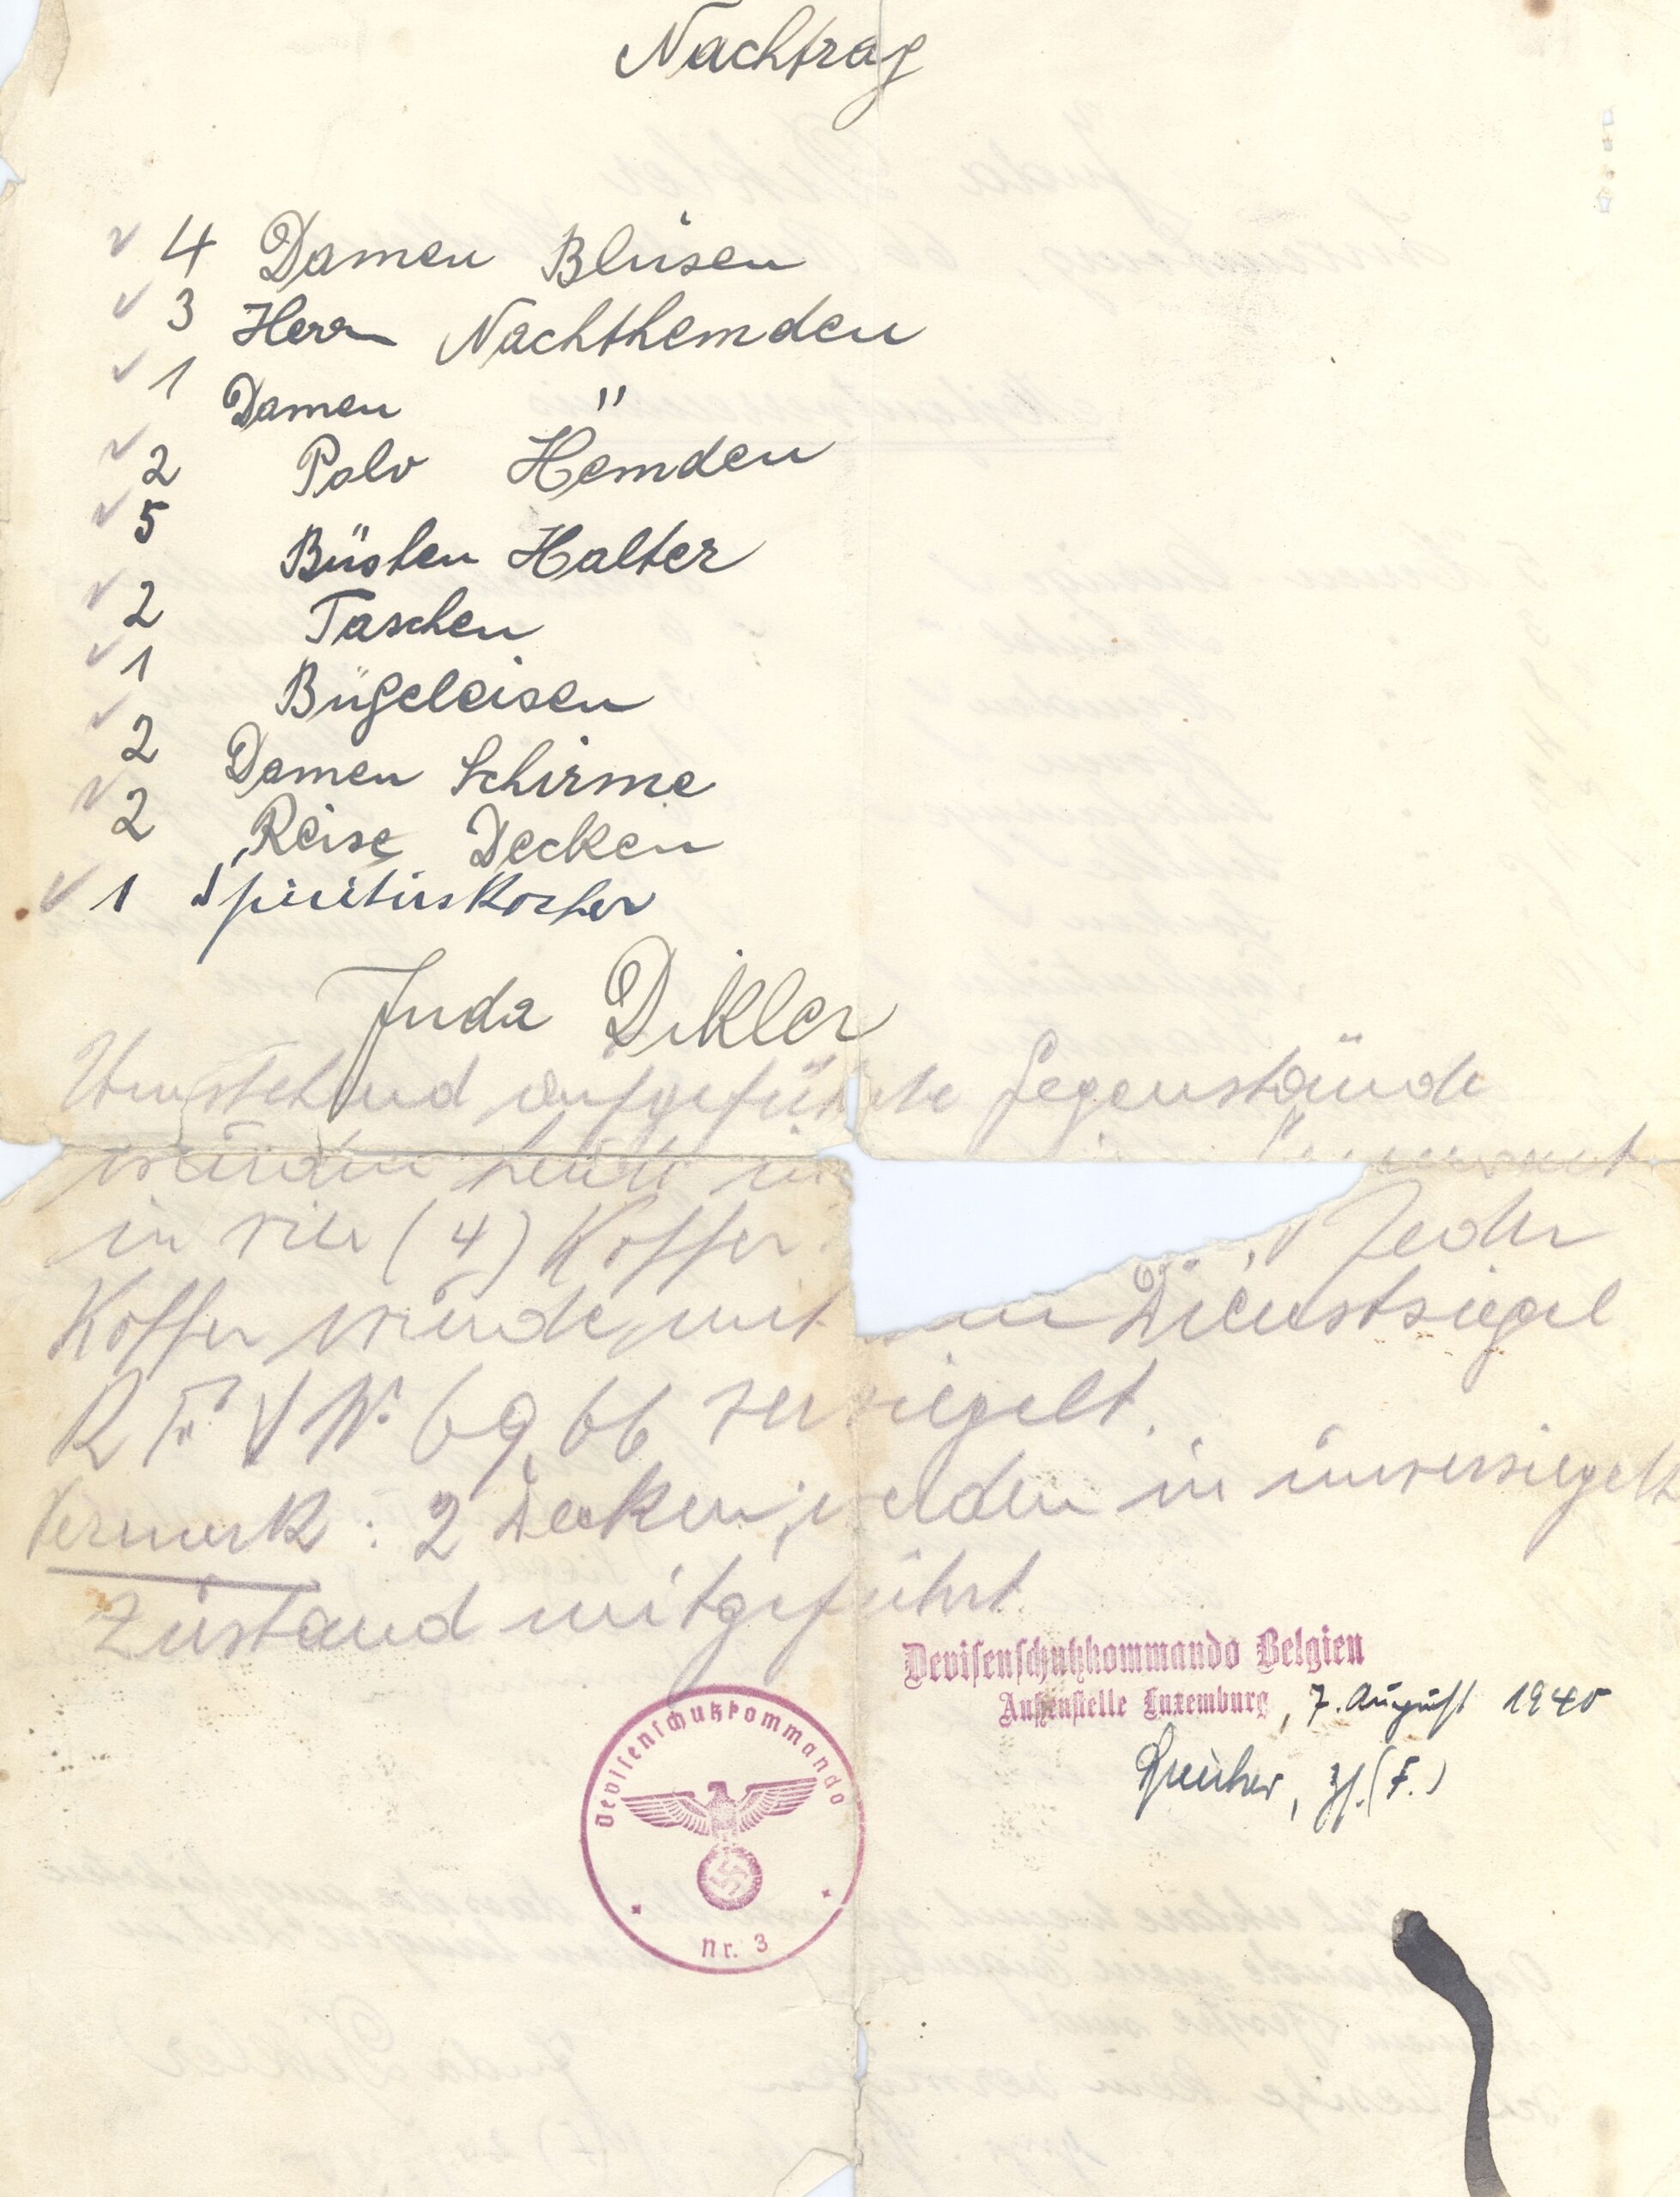 Nachtrag
4 Damen Blusen
3 Herrn Nachthemden
1 Damen "
2 Polo Hemden
5 Büsten Halter
2 Taschen
1 Bügeleisen
2 Damen Schirme
2 Reise Decken
1 Spirituskocher
Juda Dikler
Umstehend aufgeführte Gegenstände
wurden heute in
in vier (4) Koffer Jeder
Koffer wurde mit Dienstsiegel
R F V Nr 6966 versiegelt.
Vermerk : 2 Decken werden in unversiegelt
Zustand mitgeführt
Devisenschutzkommando Belgien
Außenstelle Luxemburg, 7. August 1940
(F.)
Devisenschutzkommando
Nr. 3